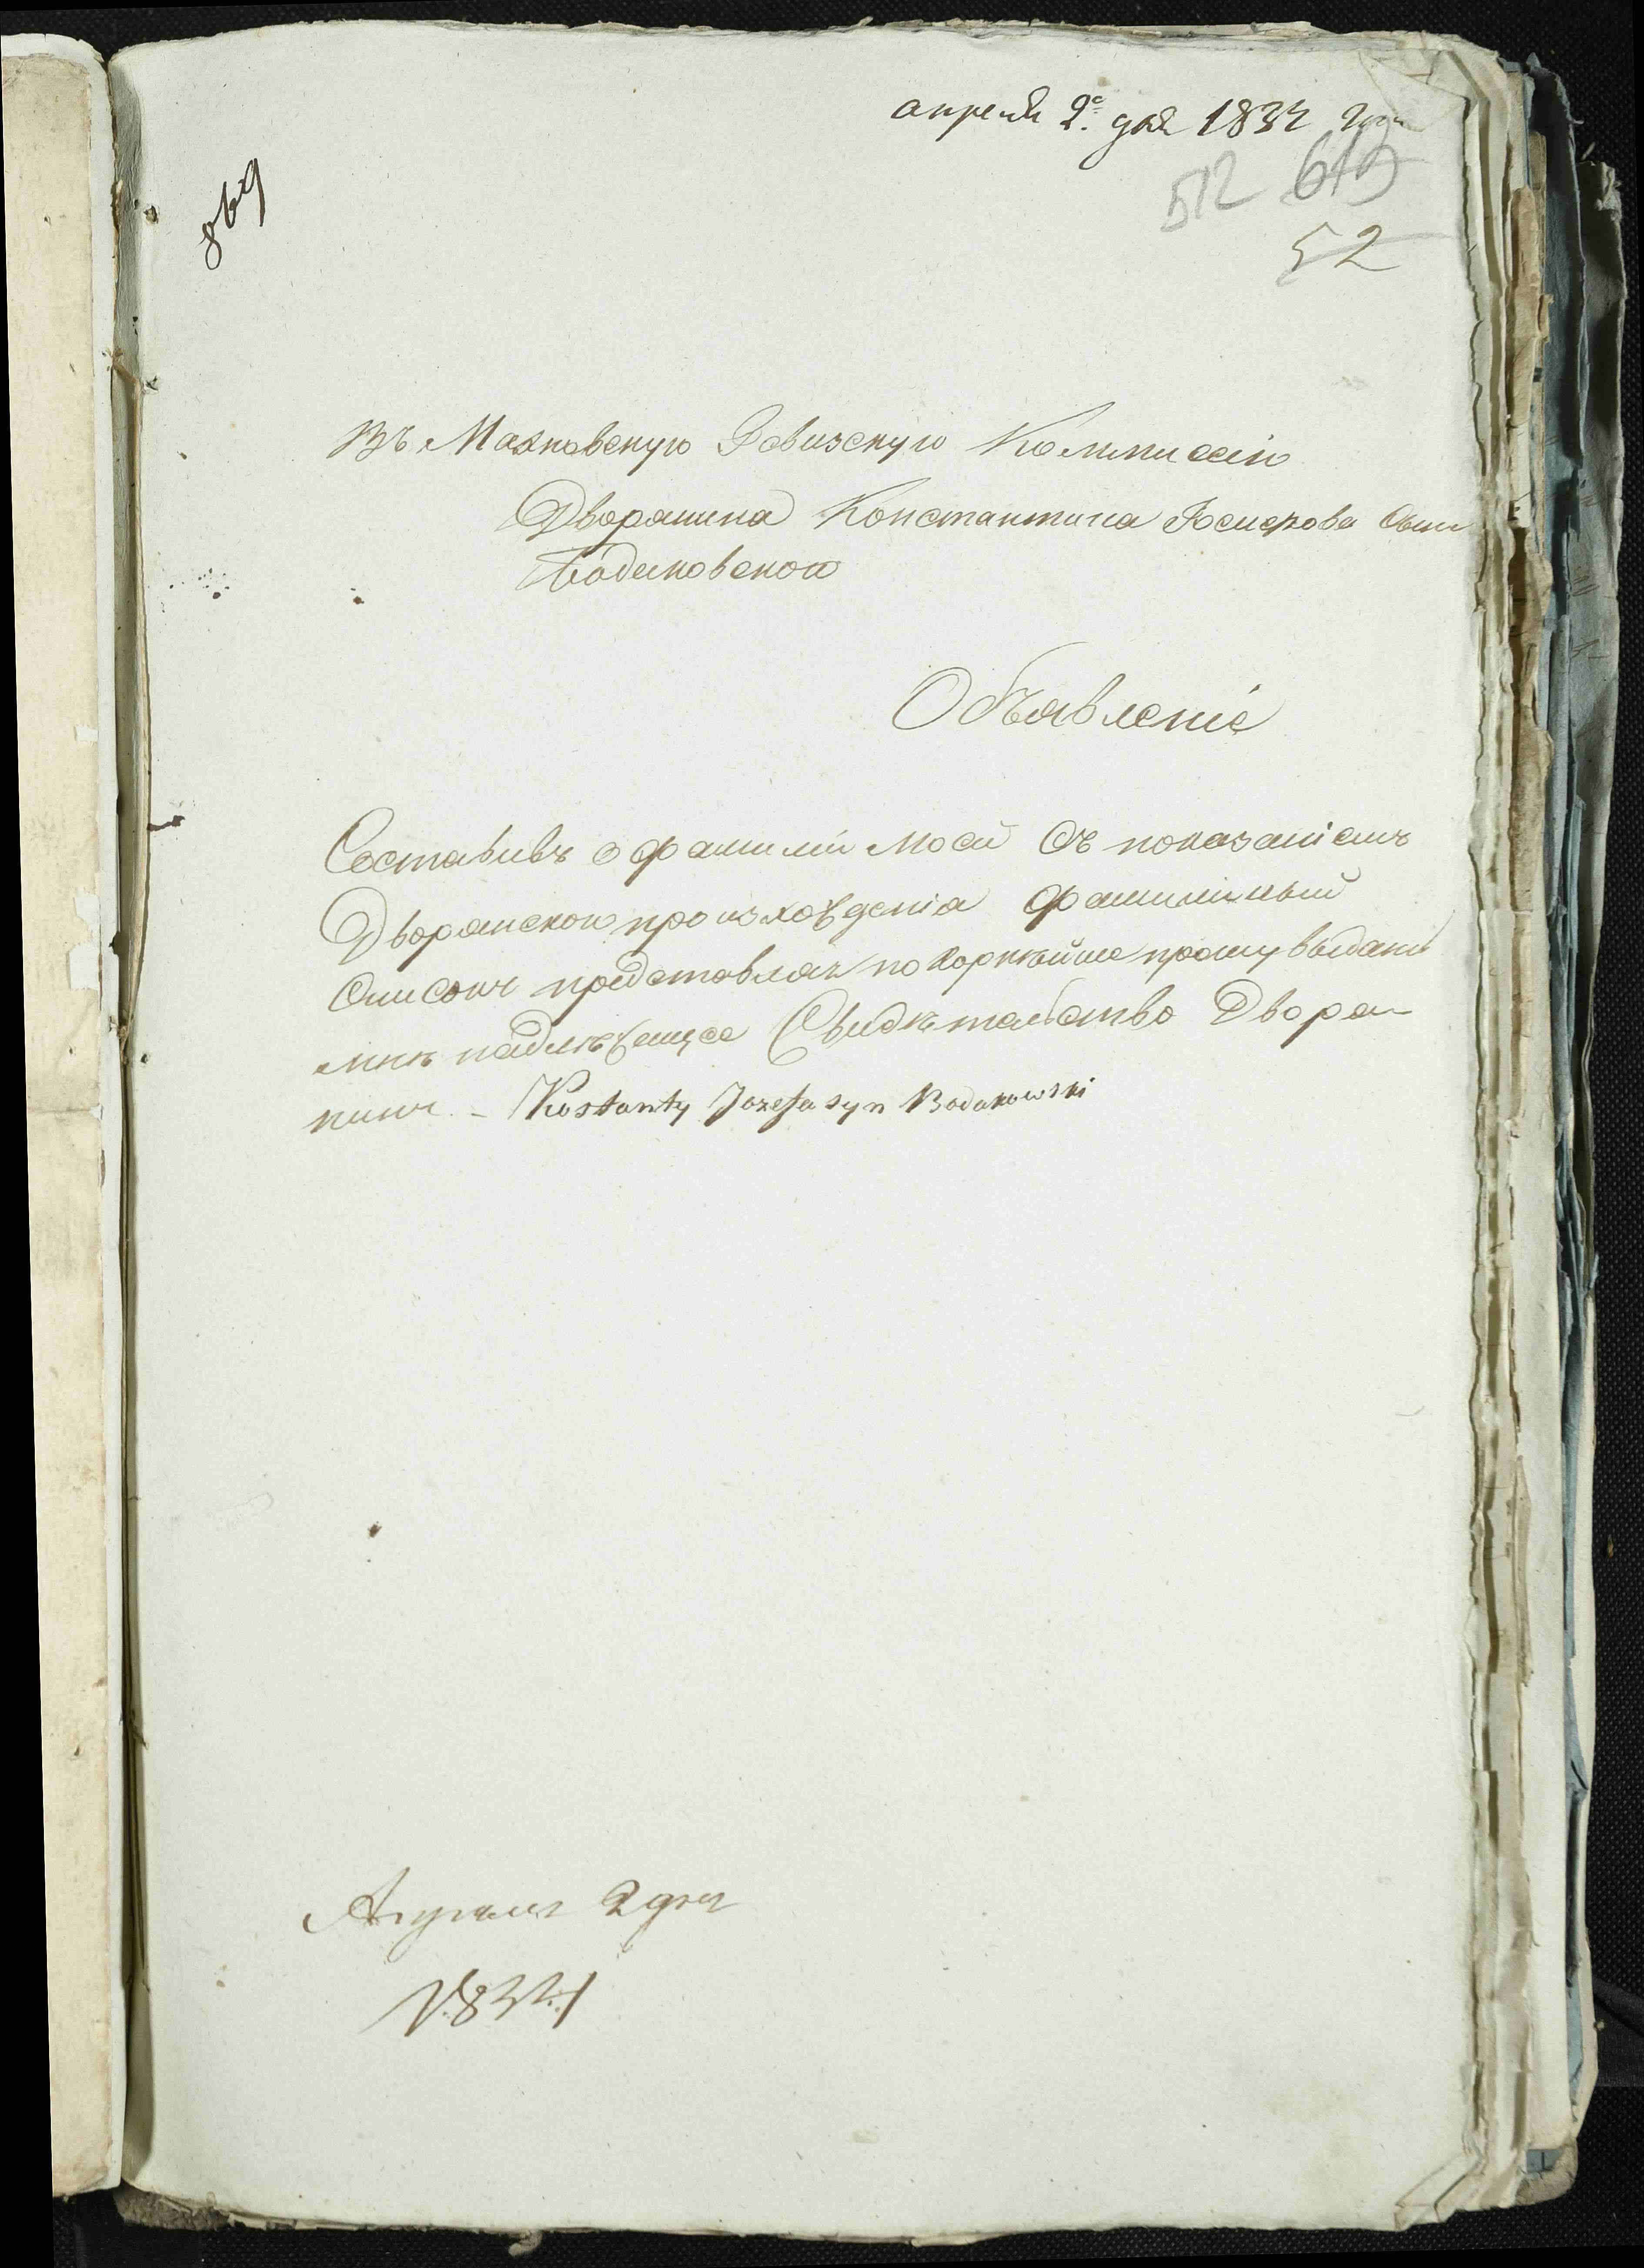 апреля 2го дня 1832 года
869
512 619
52
Въ Махновскую Ревизскую Коммиссію
Дворянина Константина Іосифова сына
Бодаковского
Объявленіе
Составивъ о фамиліи моей съ показаніемъ
Дворянского происхожденія фамилійный
Списокъ представляя покорнѣйше прошу выдать
мнѣ надлежащее Свидѣтельство Дворя-
нину. - Kostanty Jozefa syn Bodakowski
Апреля 2 дня
1832